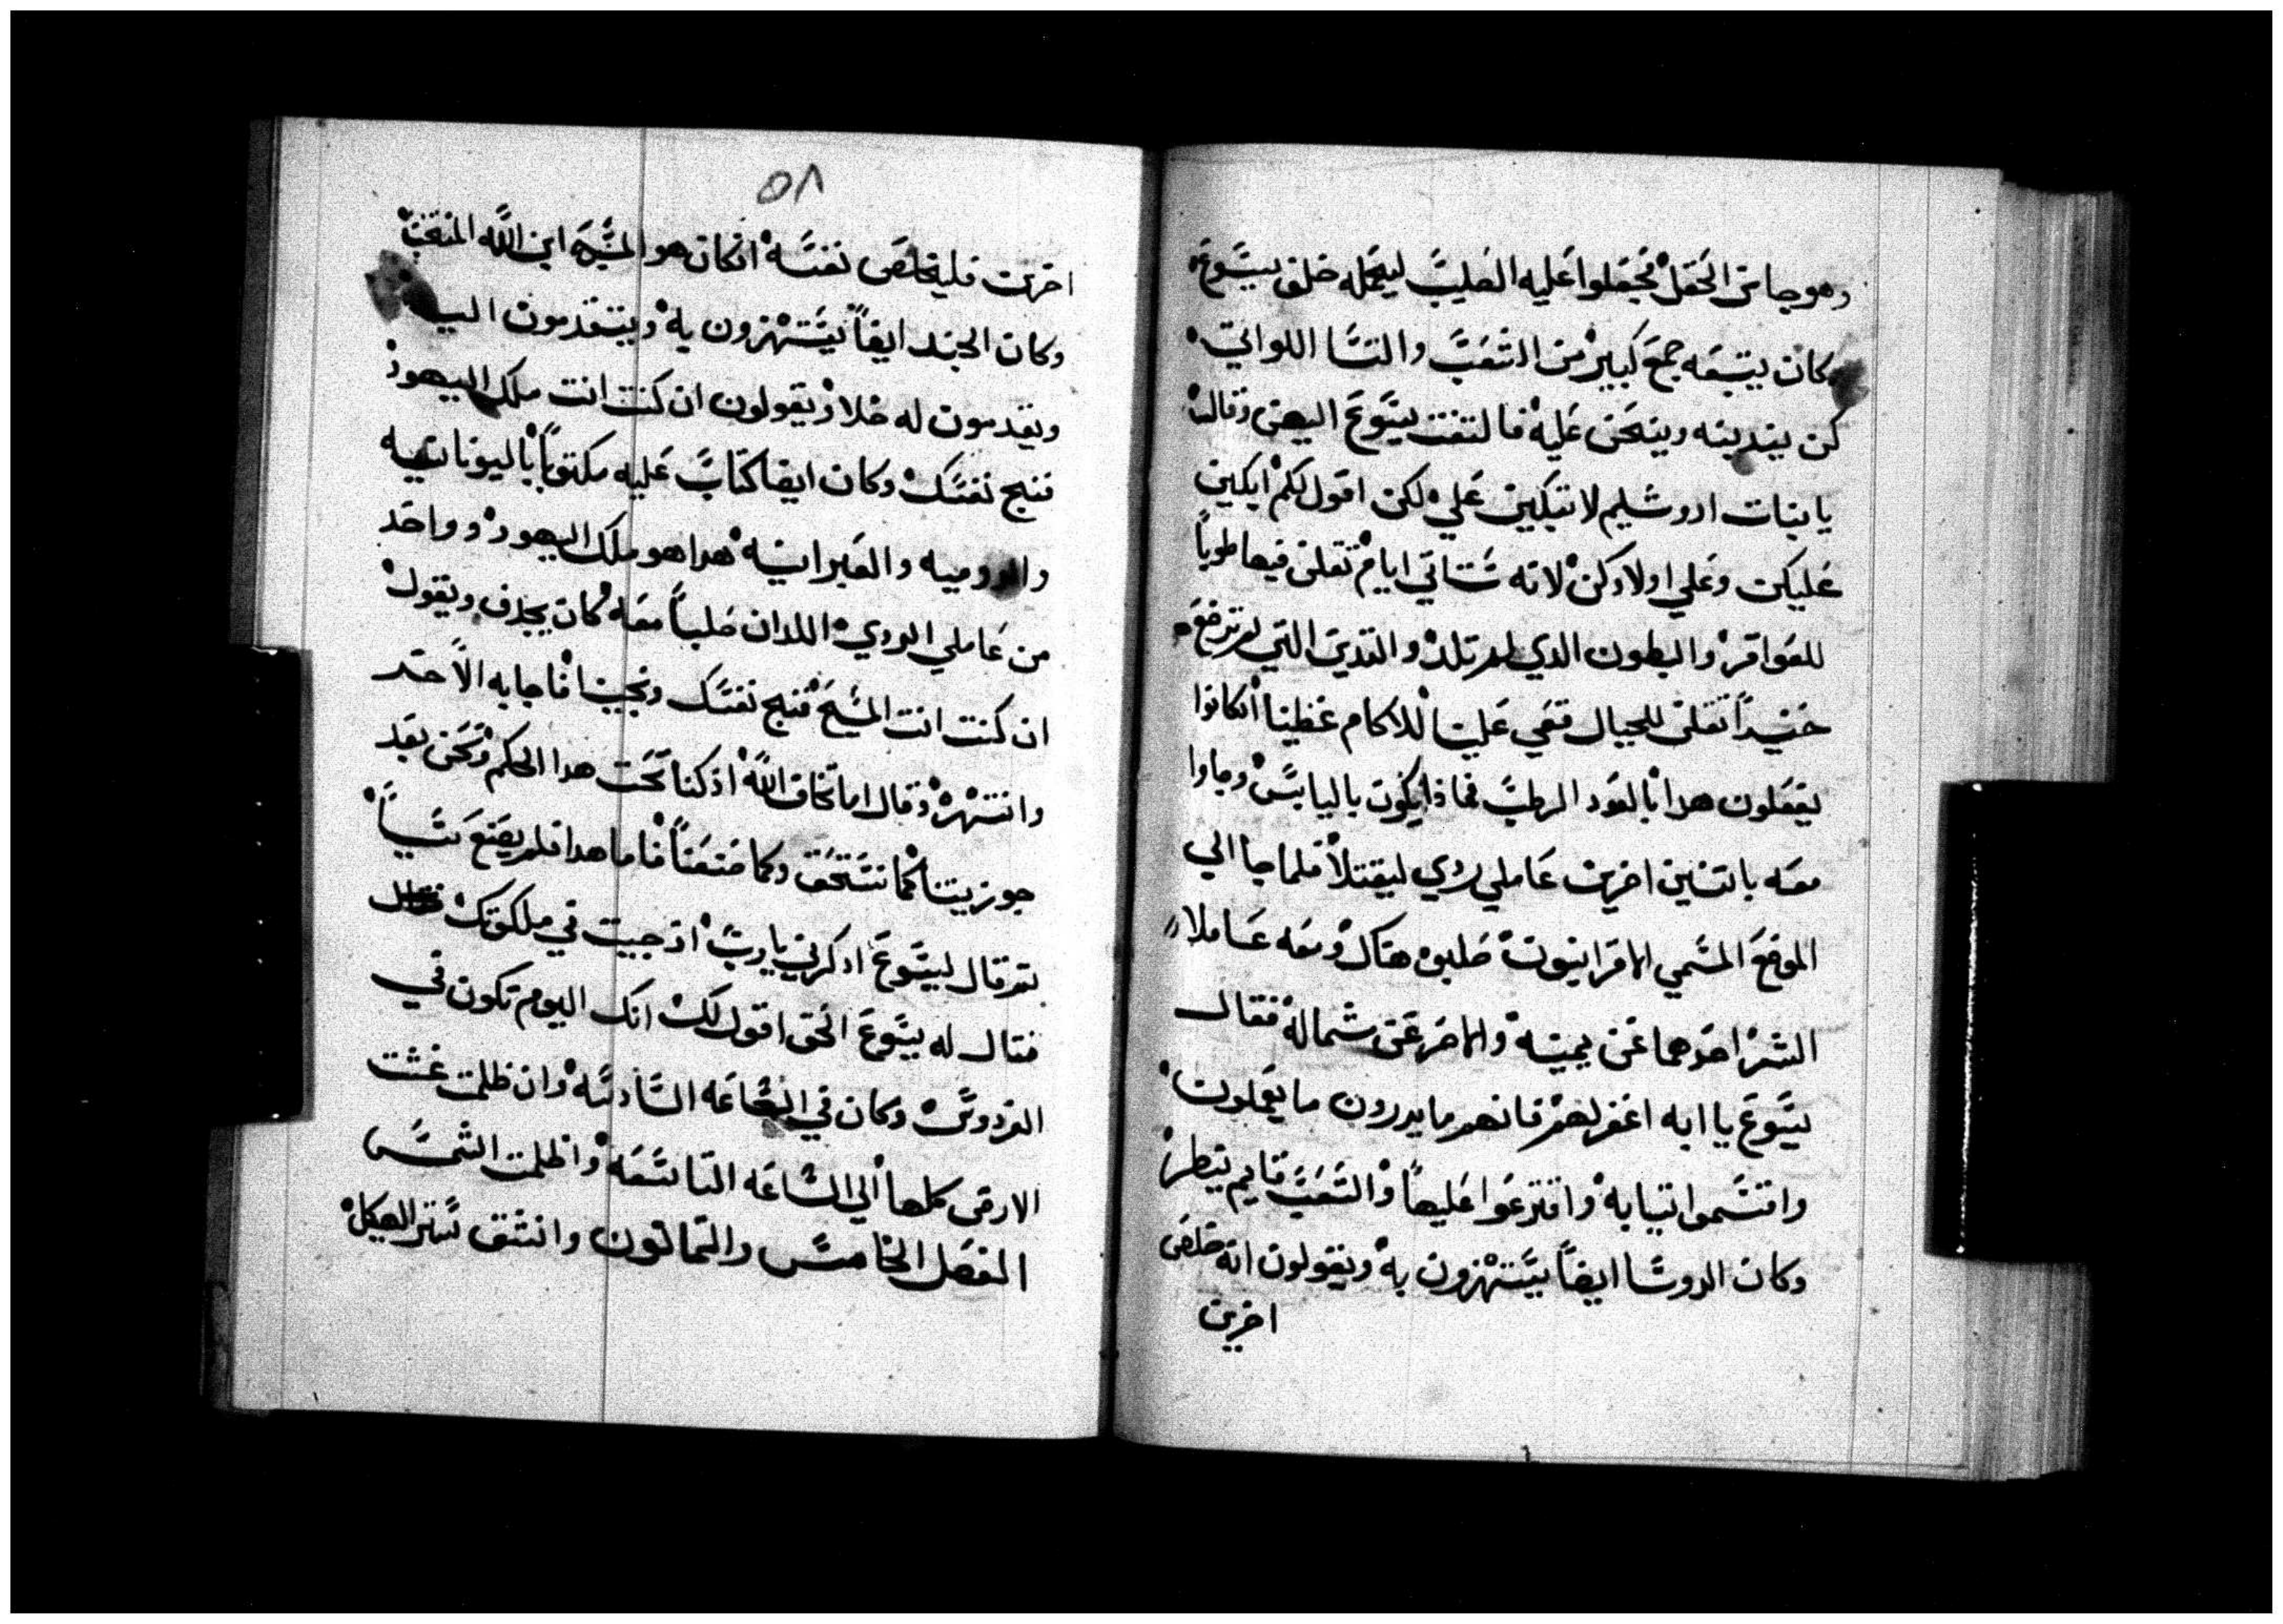 وهو جا من الحقل فجعلوا عليه الصليب ليحمله خلف يسوع
وكان يتبعه جمع كبير من الشعب والنسا اللواتي
كن يندبنه وينحن عليه فالتفت يسوع اليهن وقال
يا بنات اروشليم لا تبكين علي لكن اقول لكم ابكين
عليكن وعلي اولادكن لانه ستاتي ايام تقلن فيها طوبا
للعواقر والبطون الدي لم تلد والتدي التي لم ترضع
حنيدا تقلن للجبال قعي علينا للاكام غطينا انكانوا
يفعلون هدا بالعود الرطب فماذا يكون باليابس وجاوا
معه باتنين اخرين عاملي ردي ليقتلا فلما جا الي
الموضع المسمي الاقرانيون صلبوه هناك ومعه عاملا
الشر احدهما عن يمينه والاخر عن شماله فقال
يسوع يا ابه اغفر لهم فانهم ما يدرون ما يعملون
واقتسموا تيابه واقترعوا عليها والشعب قايم ينظر
وكان الروسا ايضا يستهزون به ويقولون انه خلص
اخرين
٥٨
اخرين فليخلص نفسه انكان هو المسيح ابن الله المنتخب
وكان الجند ايضا يستهزون به ويتقدمون اليه
ويقدمون له خلا ويقولون ان كنت انت ملك اليهود
فنج نفسك وكان ايضا كتاب عليه مكتوبا باليونانيه
والروميه والعبرانيه هدا هو ملك اليهود وواحد
من عاملي الردي اللدان صلبا معه كان يجدف ويقول
ان كنت انت المسيح فنج نفسك ونجينا فاجابه الاخر
وانتهره وقال اما تخاف الله اذ كنا تحت هدا الحكم ونحن بعد
جوزيتنا كما نستحق وكما صنعنا فاما هدا فلم يصنع شيا
تم قال ليسوع ادكرني يا رب اذ جيت في ملكوتك
فقال له يسوع الحق اقول لك انك اليوم تكون في
الفردوس وكان في الساعه السادسه وان ظلمت غشت
الارض كلها الي الساعه التاسعه واظلمت الشمس
الفصل الخامس والتمانون وانشق ستر الهيكل